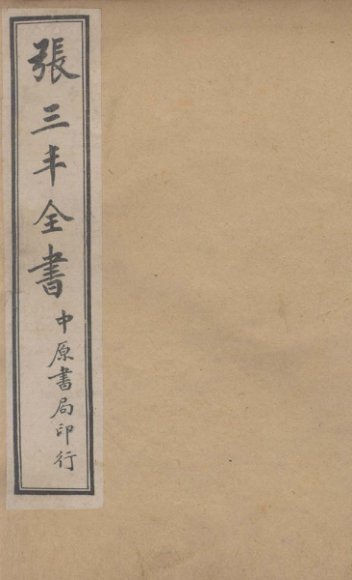 張三丰全書
中原書局印行